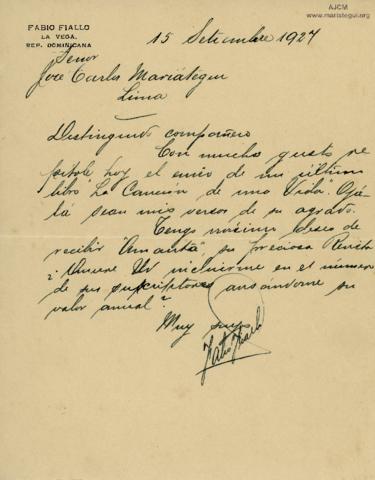 AJCM
www.mariategui.org
FABIO FIALLO
LA VEGA.
REP. DOMINICANA
15 Setiembre 1927
Señor
José Carlos Mariátegui
Lima
Distinguido compañero
Con mucho gusto re
pítole hoy el envío de mi último
libro "La Canción de una Vida". Oja-
lá sean mis versos de su agrado.
Tengo máximo deseo de
recibir "Amauta", su preciosa Revista
¿Quiere Ud incluirme en el número
de sus suscriptores avisándome su
valor anual?
Muy suyo
Fabio Fiallo